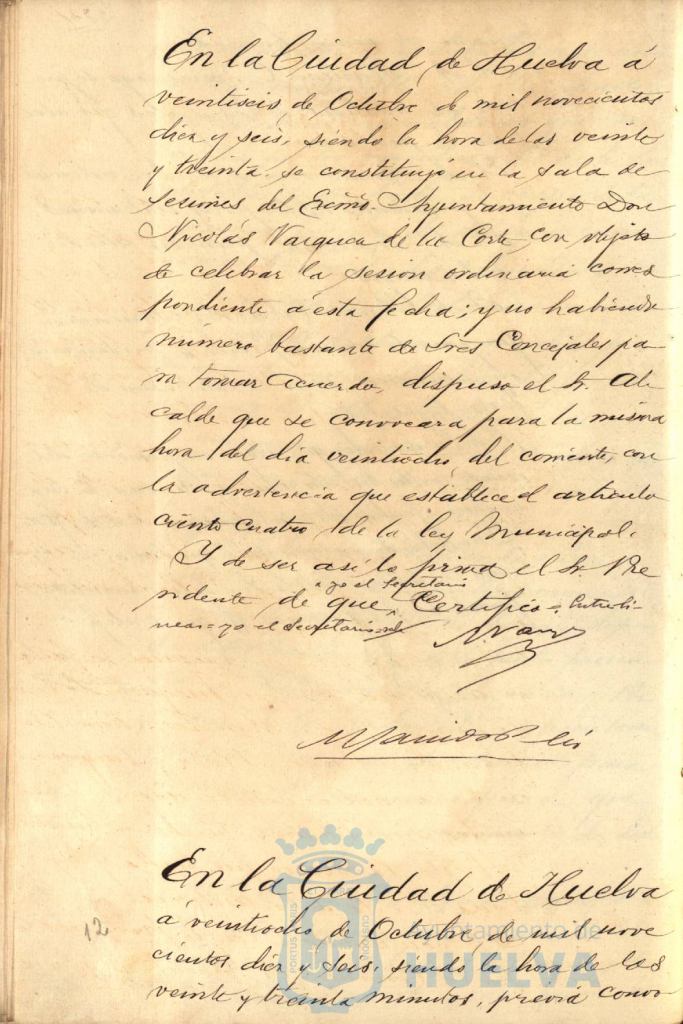 En la Ciudad de Huelva á
veintiseis de Octubre de mil novecientos
diez y seis, siendo la hora de las veinte
y treinta, se constituyó en la sala de
sesiones del Excmo. Ayuntamiento Don
Nicolás Vazquez de la Corte, con objeto
de celebrar la sesion ordinaria corres
pondiente á esta fecha; y no habiendo
número bastante de Sres Concejales pa-
ra tomar acuerdo, dispuso el Sr. Al-
calde que se convocara para la misma
hora del dia veintiocho del corriente, con
la advertencia que establece el articulo
ciento cuatro de la ley Municipal.
Y de ser asi lo firma el Sr. Pre
yo el Secretario
sidente de que Certifico = Entreli-
neas = yo el Secretario = vale
N. Vazquez
En la Ciudad de Huelva
á veintiocho de Octubre de mil nove
cientos diez y seis, siendo la hora de las
veinte y treinta minutos, previa convo
12
PORTUS
Ayuntamiento de
HUELVA